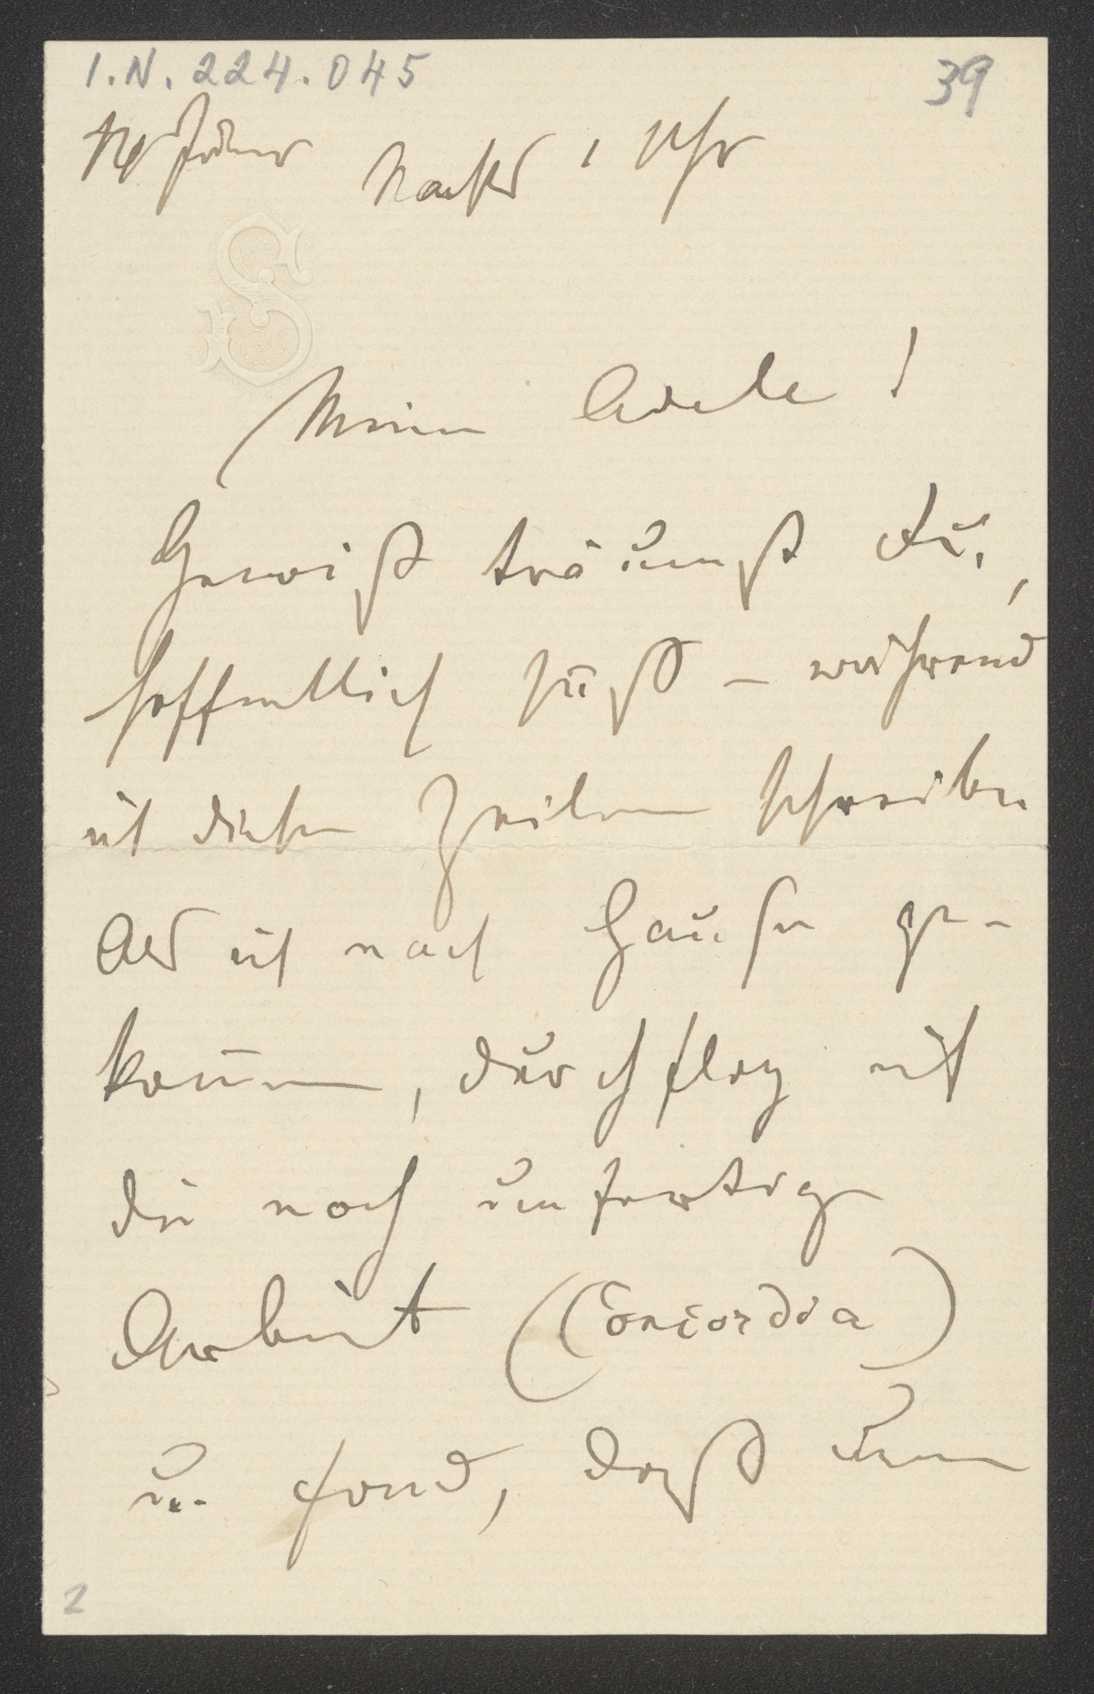 I.N. 224.045
39
Nachts 1 Uhr
S
Meine Adele!
Gewiß träumst Du,
hoffentlich süß – während
ich diese Zeilen schreibe
Als ich nach Hause ge-
kommen, durchflog ich
die noch unfertige
Arbeit (Concordia)
u. fand, daß
2